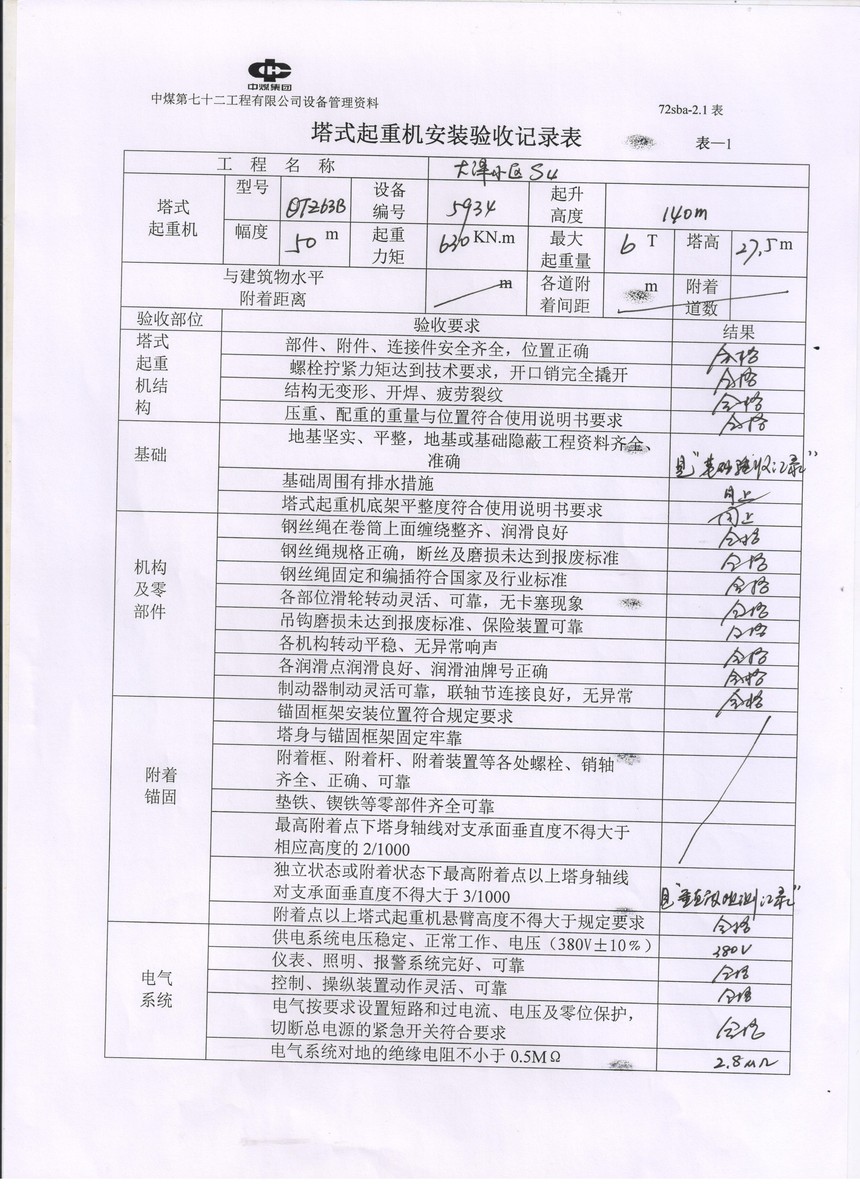 中煤集团
中煤第七十二工程有限公司设备管理资料
72sba-2.1 表
塔式起重机安装验收记录表
表—1
工 程 名 称 大泽小区 S4
塔式起重机 型号 QTZ63B 设备编号 5934 起升高度 140m
幅度 50 m 起重力矩 630 KN.m 最大起重量 6 T 塔高 27.5 m
与建筑物水平附着距离 m 各道附着间距 m 附着道数
验收部位 验收要求 结果
塔式起重机结构 部件、附件、连接件安全齐全，位置正确 合格
螺栓拧紧力矩达到技术要求，开口销完全撬开 合格
结构无变形、开焊、疲劳裂纹 合格
压重、配重的重量与位置符合使用说明书要求 合格
基础 地基坚实、平整，地基或基础隐蔽工程资料齐全、
准确 见"基础验收记录"
基础周围有排水措施 同上
塔式起重机底架平整度符合使用说明书要求 同上
机构及零部件 钢丝绳在卷筒上面缠绕整齐、润滑良好 合格
钢丝绳规格正确，断丝及磨损未达到报废标准 合格
钢丝绳固定和编插符合国家及行业标准 合格
各部位滑轮转动灵活、可靠，无卡塞现象 合格
吊钩磨损未达到报废标准、保险装置可靠 合格
各机构转动平稳、无异常响声 合格
各润滑点润滑良好、润滑油牌号正确 合格
制动器制动灵活可靠，联轴节连接良好，无异常 合格
附着锚固 锚固框架安装位置符合规定要求
塔身与锚固框架固定牢靠
附着框、附着杆、附着装置等各处螺栓、销轴
齐全、正确、可靠
垫铁、锲铁等零部件齐全可靠
最高附着点下塔身轴线对支承面垂直度不得大于
相应高度的 2/1000
独立状态或附着状态下最高附着点以上塔身轴线
对支承面垂直度不得大于 3/1000 见"垂直度观测记录"
附着点以上塔式起重机悬臂高度不得大于规定要求 合格
电气系统 供电系统电压稳定、正常工作、电压（380V±10％） 380V
仪表、照明、报警系统完好、可靠 合格
控制、操纵装置动作灵活、可靠 合格
电气按要求设置短路和过电流、电压及零位保护，
切断总电源的紧急开关符合要求 合格
电气系统对地的绝缘电阻不小于 0.5MΩ 2.8MΩ